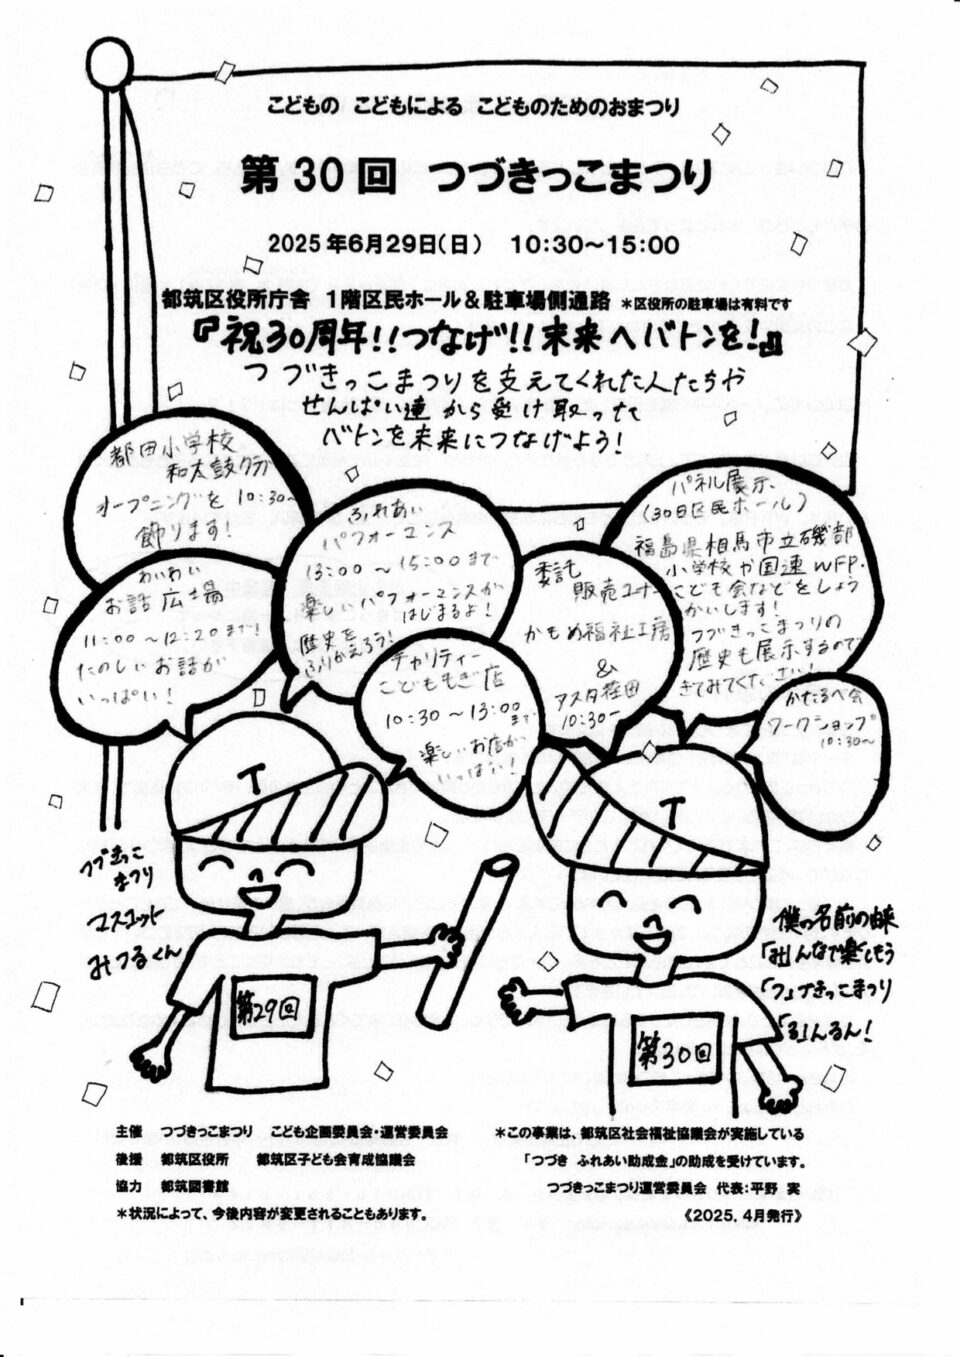 こどもの こどもによる こどものためのおまつり
第30回 つづきっこまつり
2025年6月29日(日) 10:30～15:00
都筑区役所庁舎 1階区民ホール＆駐車場側通路 ＊区役所の駐車場は有料です
『祝30周年!!つなげ!!未来へバトンを!』
つづきっこまつりを支えてくれた人たちや
せんぱい達から受け取って
バトンを未来につなげよう!
都田小学校
和太鼓クラブ
オープニングを10:30～
飾ります!
わいわい
お話広場
11:00～12:20まで!
たのしいお話が
いっぱい!
ふれあい
パフォーマンス
13:00～15:00まで
楽しいパフォーマンスが
はじまるよ!
歴史を
ふりかえろう!
チャリティー
こどももぎ店
10:30～13:00まで
楽しいお店が
いっぱい!
委託
販売コーナー
かもめ福祉工房
&
アスタ荏田
10:30～
パネル展示
(30日区民ホール)
福島県相馬市立磯部
小学校や国連WFP・
こども会などをしょう
かいします!
つづきっこまつりの
歴史も展示するので
きてみてください!
かたるべ会
ワークショップ
10:30～
T
T
つづきっこ
まつり
マスコット
みつるくん
第29回
第30回
僕の名前の由来
「み」んなで楽しもう
「つ」づきっこまつり
「る」んるん!
主催 つづきっこまつり こども企画委員会・運営委員会
後援 都筑区役所 都筑区子ども会育成協議会
協力 都筑図書館
＊状況によって、今後内容が変更されることもあります。
＊この事業は、都筑区社会福祉協議会が実施している
「つづき ふれあい助成金」の助成を受けています。
つづきっこまつり運営委員会 代表:平野 実
《2025.4月発行》